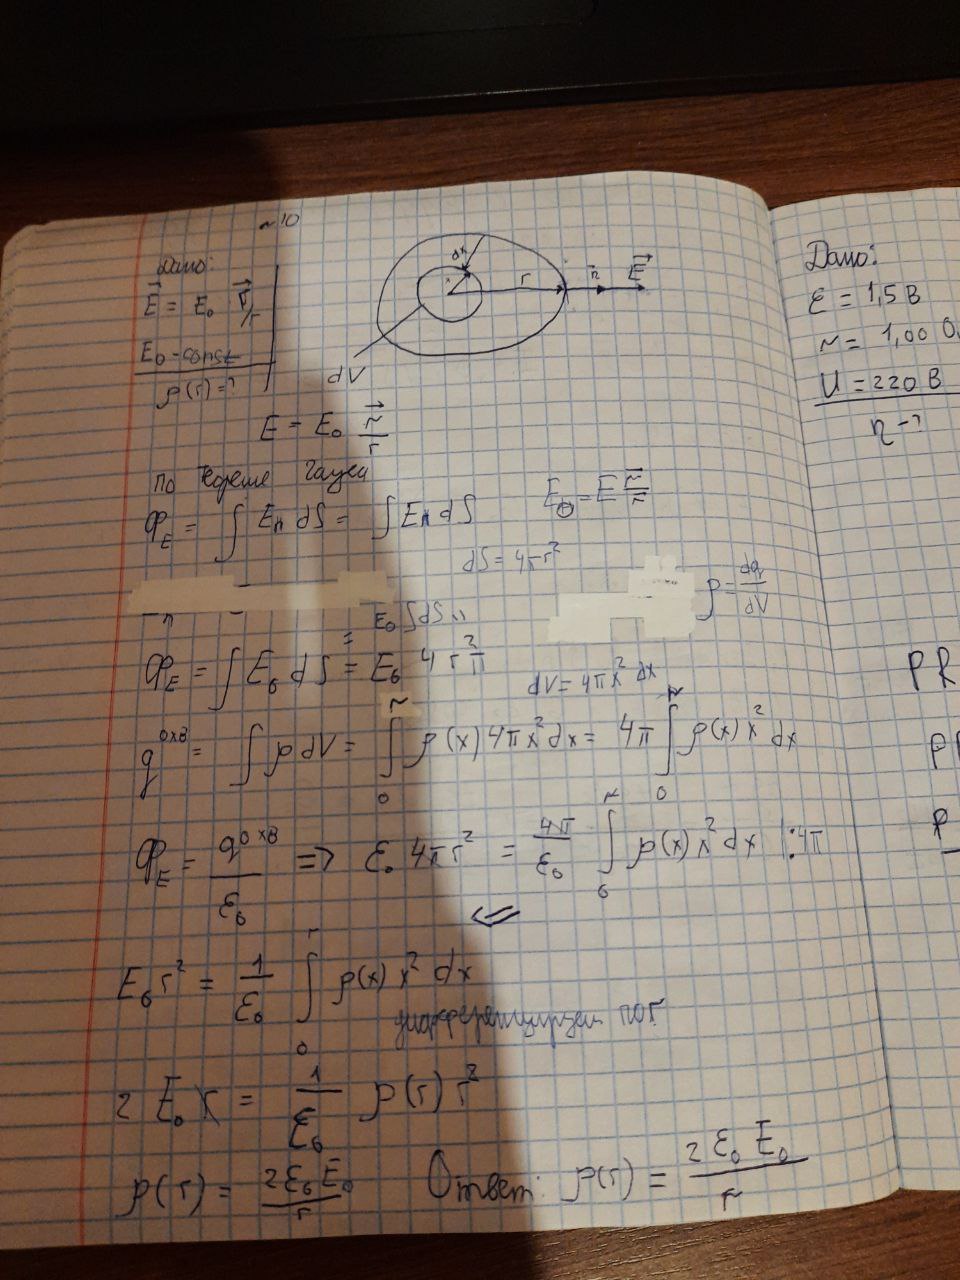 ~10
Дано:
E⃗ = E₀ r⃗/r
E₀ - const
ρ(r) = ?
dx
r
n⃗
E⃗
dV
E = E₀ r⃗/r
По теореме Гаусса
Ф_E = ∫ Eₙ dS = ∫ Eₙ dS
dS = 4πr²
ρ = dq/dV
= E₀ ∫ dS
Ф_E = ∫ E₀ dS = E₀ 4 r² π
dV = 4πx² dx
q^охв = ∫ ρ dV = ∫₀^r ρ(x) 4πx² dx = 4π ∫₀^r ρ(x) x² dx
Ф_E = q^охв/ε₀ => ε₀ 4πr² = 4π/ε₀ ∫₀^r ρ(x) x² dx |:4π
E₀ r² = 1/ε₀ ∫₀^r ρ(x) x² dx
дифференцируем по r
2 E₀ r = 1/ε₀ ρ(r) r²
ρ(r) = 2ε₀E₀/r
Ответ: ρ(r) = 2ε₀E₀/r
Дано:
ε = 1,5 В
r = 1,00
U = 220 В
η - ?
PR